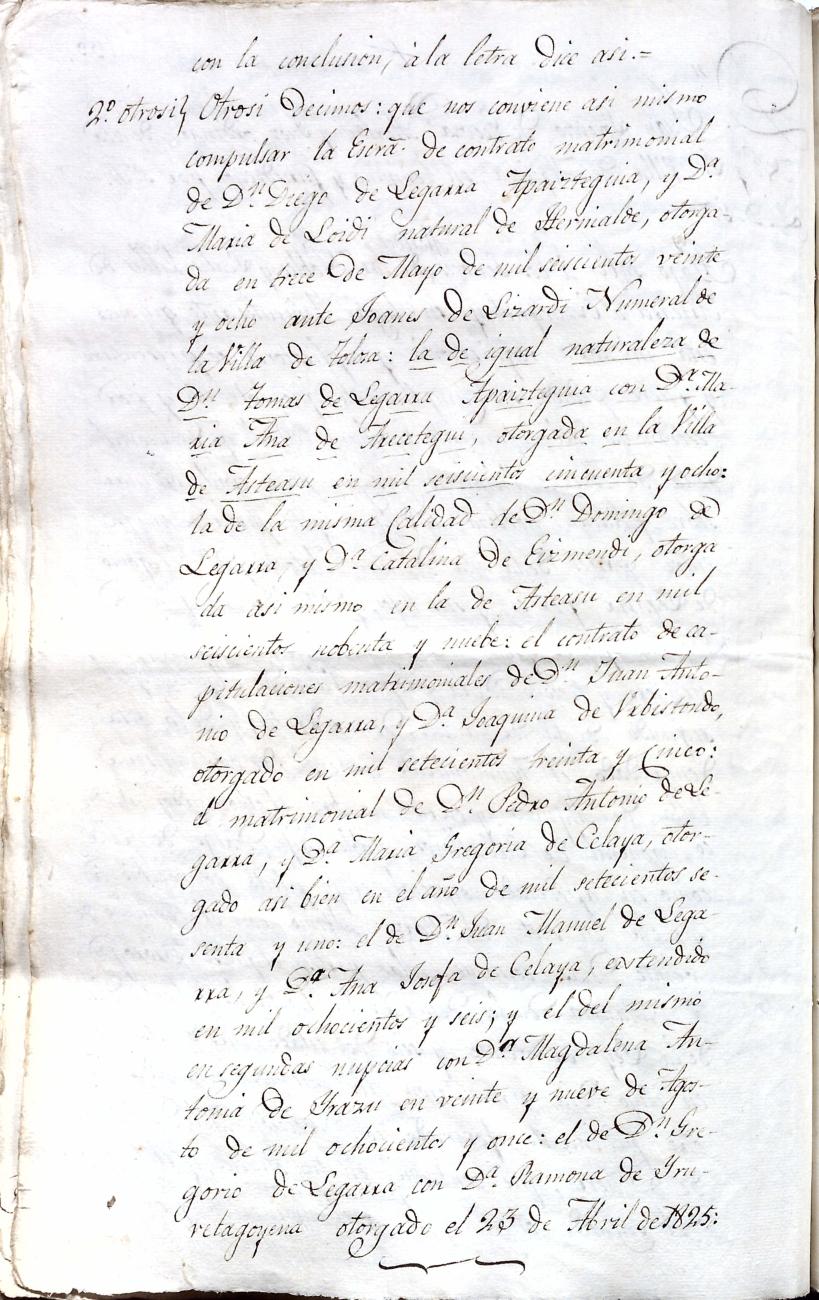 con la conclusion, à la letra dice asi.=
2.º otrosi} Otrosi Decimos: que nos conviene asi mismo
compulsar la Escrã. de contrato matrimonial
de Dⁿ Diego de Legarra Apaizteguia, y Dª
Maria de Loidi natural de Hernialde, otorga-
da en trece de Mayo de mil seiscientos veinte
y ocho ante Joanes de Lizardi Numeral de
la Villa de Tolosa: la de igual naturaleza de
Dⁿ Tomas de Legarra Apaizteguia con Dª Ma-
ria Ana de Arecetegui, otorgada en la Villa
de Asteasu en mil seiscientos cincuenta y ocho:
la de la misma Calidad de Dⁿ Domingo de
Legarra, y Dª Catalina de Eizmendi, otorga-
da asi mismo en la de Asteasu en mil
seiscientos nobenta y nuebe: el contrato de ca-
pitulaciones matrimoniales de Dⁿ Juan Anto-
nio de Legarra, y Dª Joaquina de Urbistondo,
otorgado en mil setecientos treinta y Cinco:
el matrimonial de Dⁿ Pedro Antonio de Le-
garra, y Dª Maria Gregoria de Celaya, otor-
gado asi bien en el año de mil setecientos se-
senta y uno: el de Dⁿ Juan Manuel de Lega-
rra, y Dª Ana Josefa de Celaya, extendido
en mil ochocientos y seis; y el del mismo
en segundas nupcias con Dª Magdalena An-
tonia de Yrazu en veinte y nueve de Agos-
to de mil ochocientos y once: el de Dⁿ Gre-
gorio de Legarra con Dª Ramona de Yru-
retagoyena otorgado el 23 de Abril de 1825: